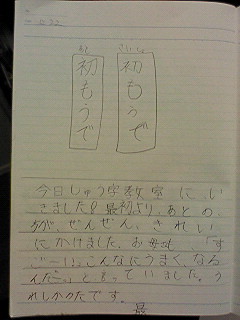 あと
初もうで
さいしょ
初もうで
今日しゅう字教室にい
きました。最初より、あとの
方が、ぜんぜん、きれい
にかけました。お母さんも、「す
ごーい。こんなにうまく、なる
んだー。」と言っていました。う
れしかったです。